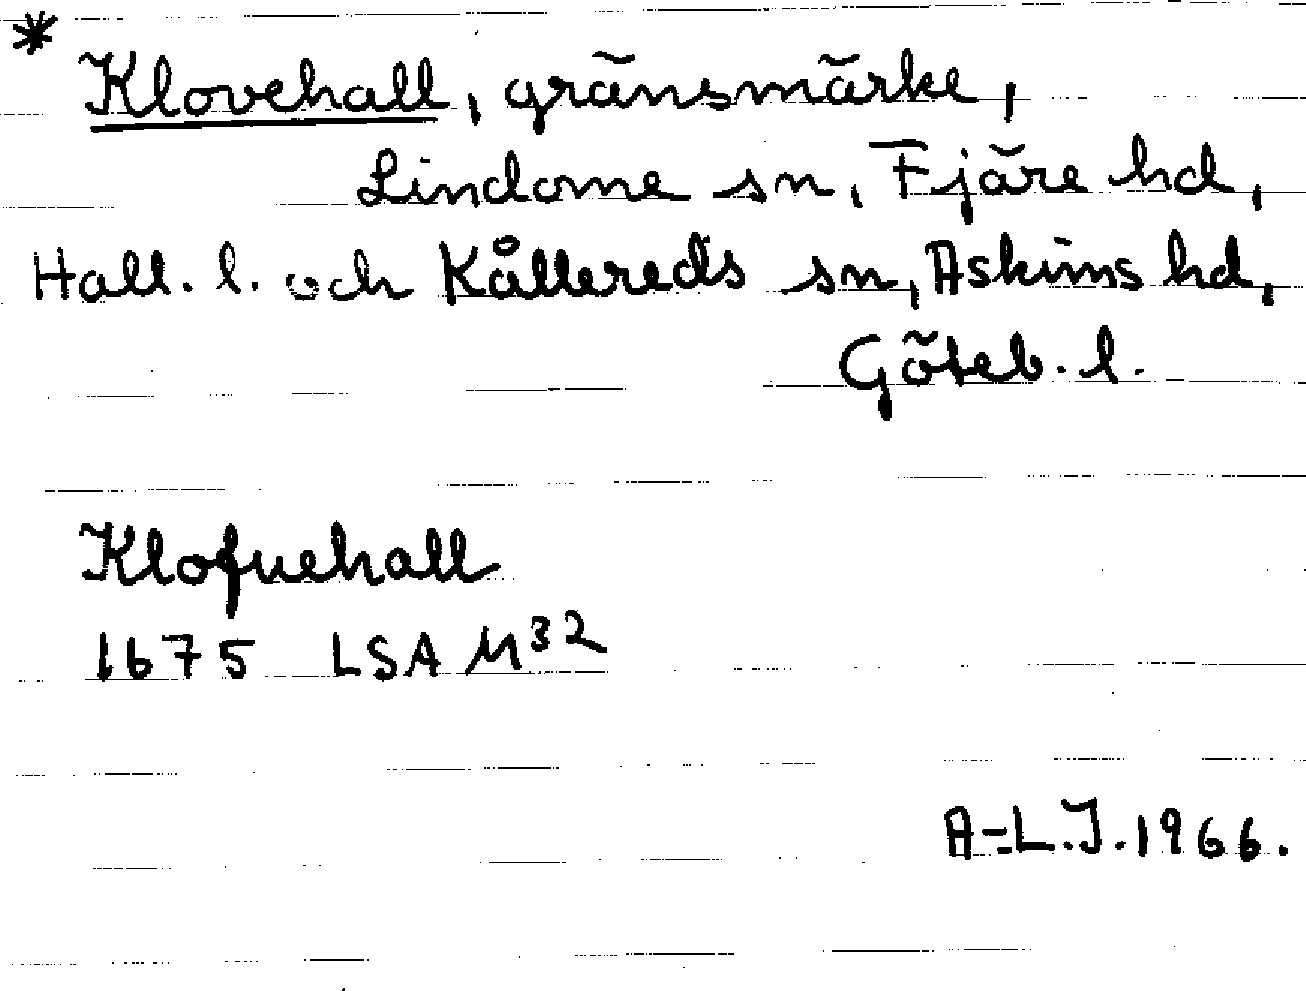 * Klovehall, gränsmärke,
Lindome sn, Fjäre hd,
Hall. l. och Kållereds sn, Askims hd,
Göteb. l.
Klofuehall
1675 LSA M³²
A-L.J. 1966.